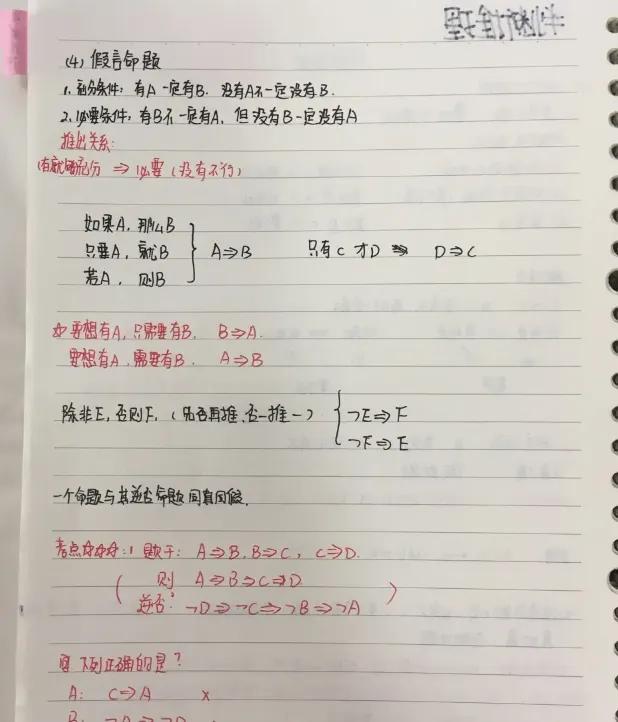 (4) 假言命题
1. 充分条件: 有A一定有B. 没有A不一定没有B.
2. 必要条件: 有B不一定有A, 但没有B一定没有A
推出关系:
充分 ⇒ 必要 (没有不行)
如果A, 那么B
只要A, 就B } A⇒B 只有C才D D⇒C
若A, 则B
如 要想有A, 只需要有B. B⇒A.
要想有A, 需要有B. A⇒B
除非E, 否则F. (先否再推, 否一推一) { ¬E⇒F
¬F⇒E
一个命题与其逆否命题同真同假.
考点: 1 题干: A⇒B, B⇒C, C⇒D.
( 则 A⇒B⇒C⇒D
逆否: ¬D⇒¬C⇒¬B⇒¬A )
问 下列正确的是?
A: C⇒A ×